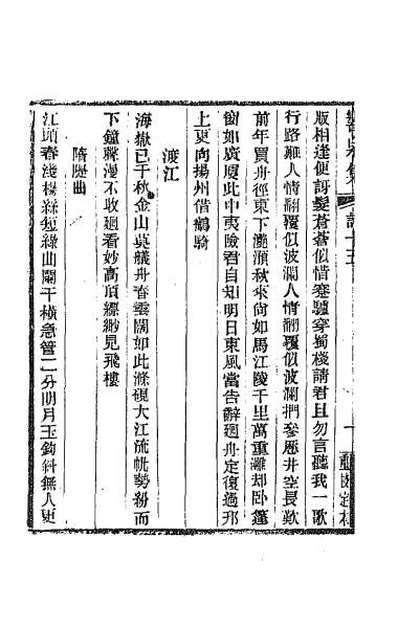 版相逢便訝髮蒼蒼似惜蹇驢穿蜀棧請君且勿言聽我一歌
行路難人情翻覆似波瀾人情翻覆似波瀾捫參歷井空長歎
前年買舟徑東下灔澦秋來尙如馬江陵千里萬重灘却臥篷
窗如廣廈此中夷險君自知明日東風當告辭迴舟定復過邗
上更向揚州借鶴騎
渡江
海嶽已千秋金山莫艤舟春雲闊如此滌硯大江流帆勢紛而
下鐘聲漫不收迴看妙高頂縹緲見飛樓
隋隄曲
江頭春淺楊絲短綠曲闌干橫急管二分明月玉鉤斜無人更